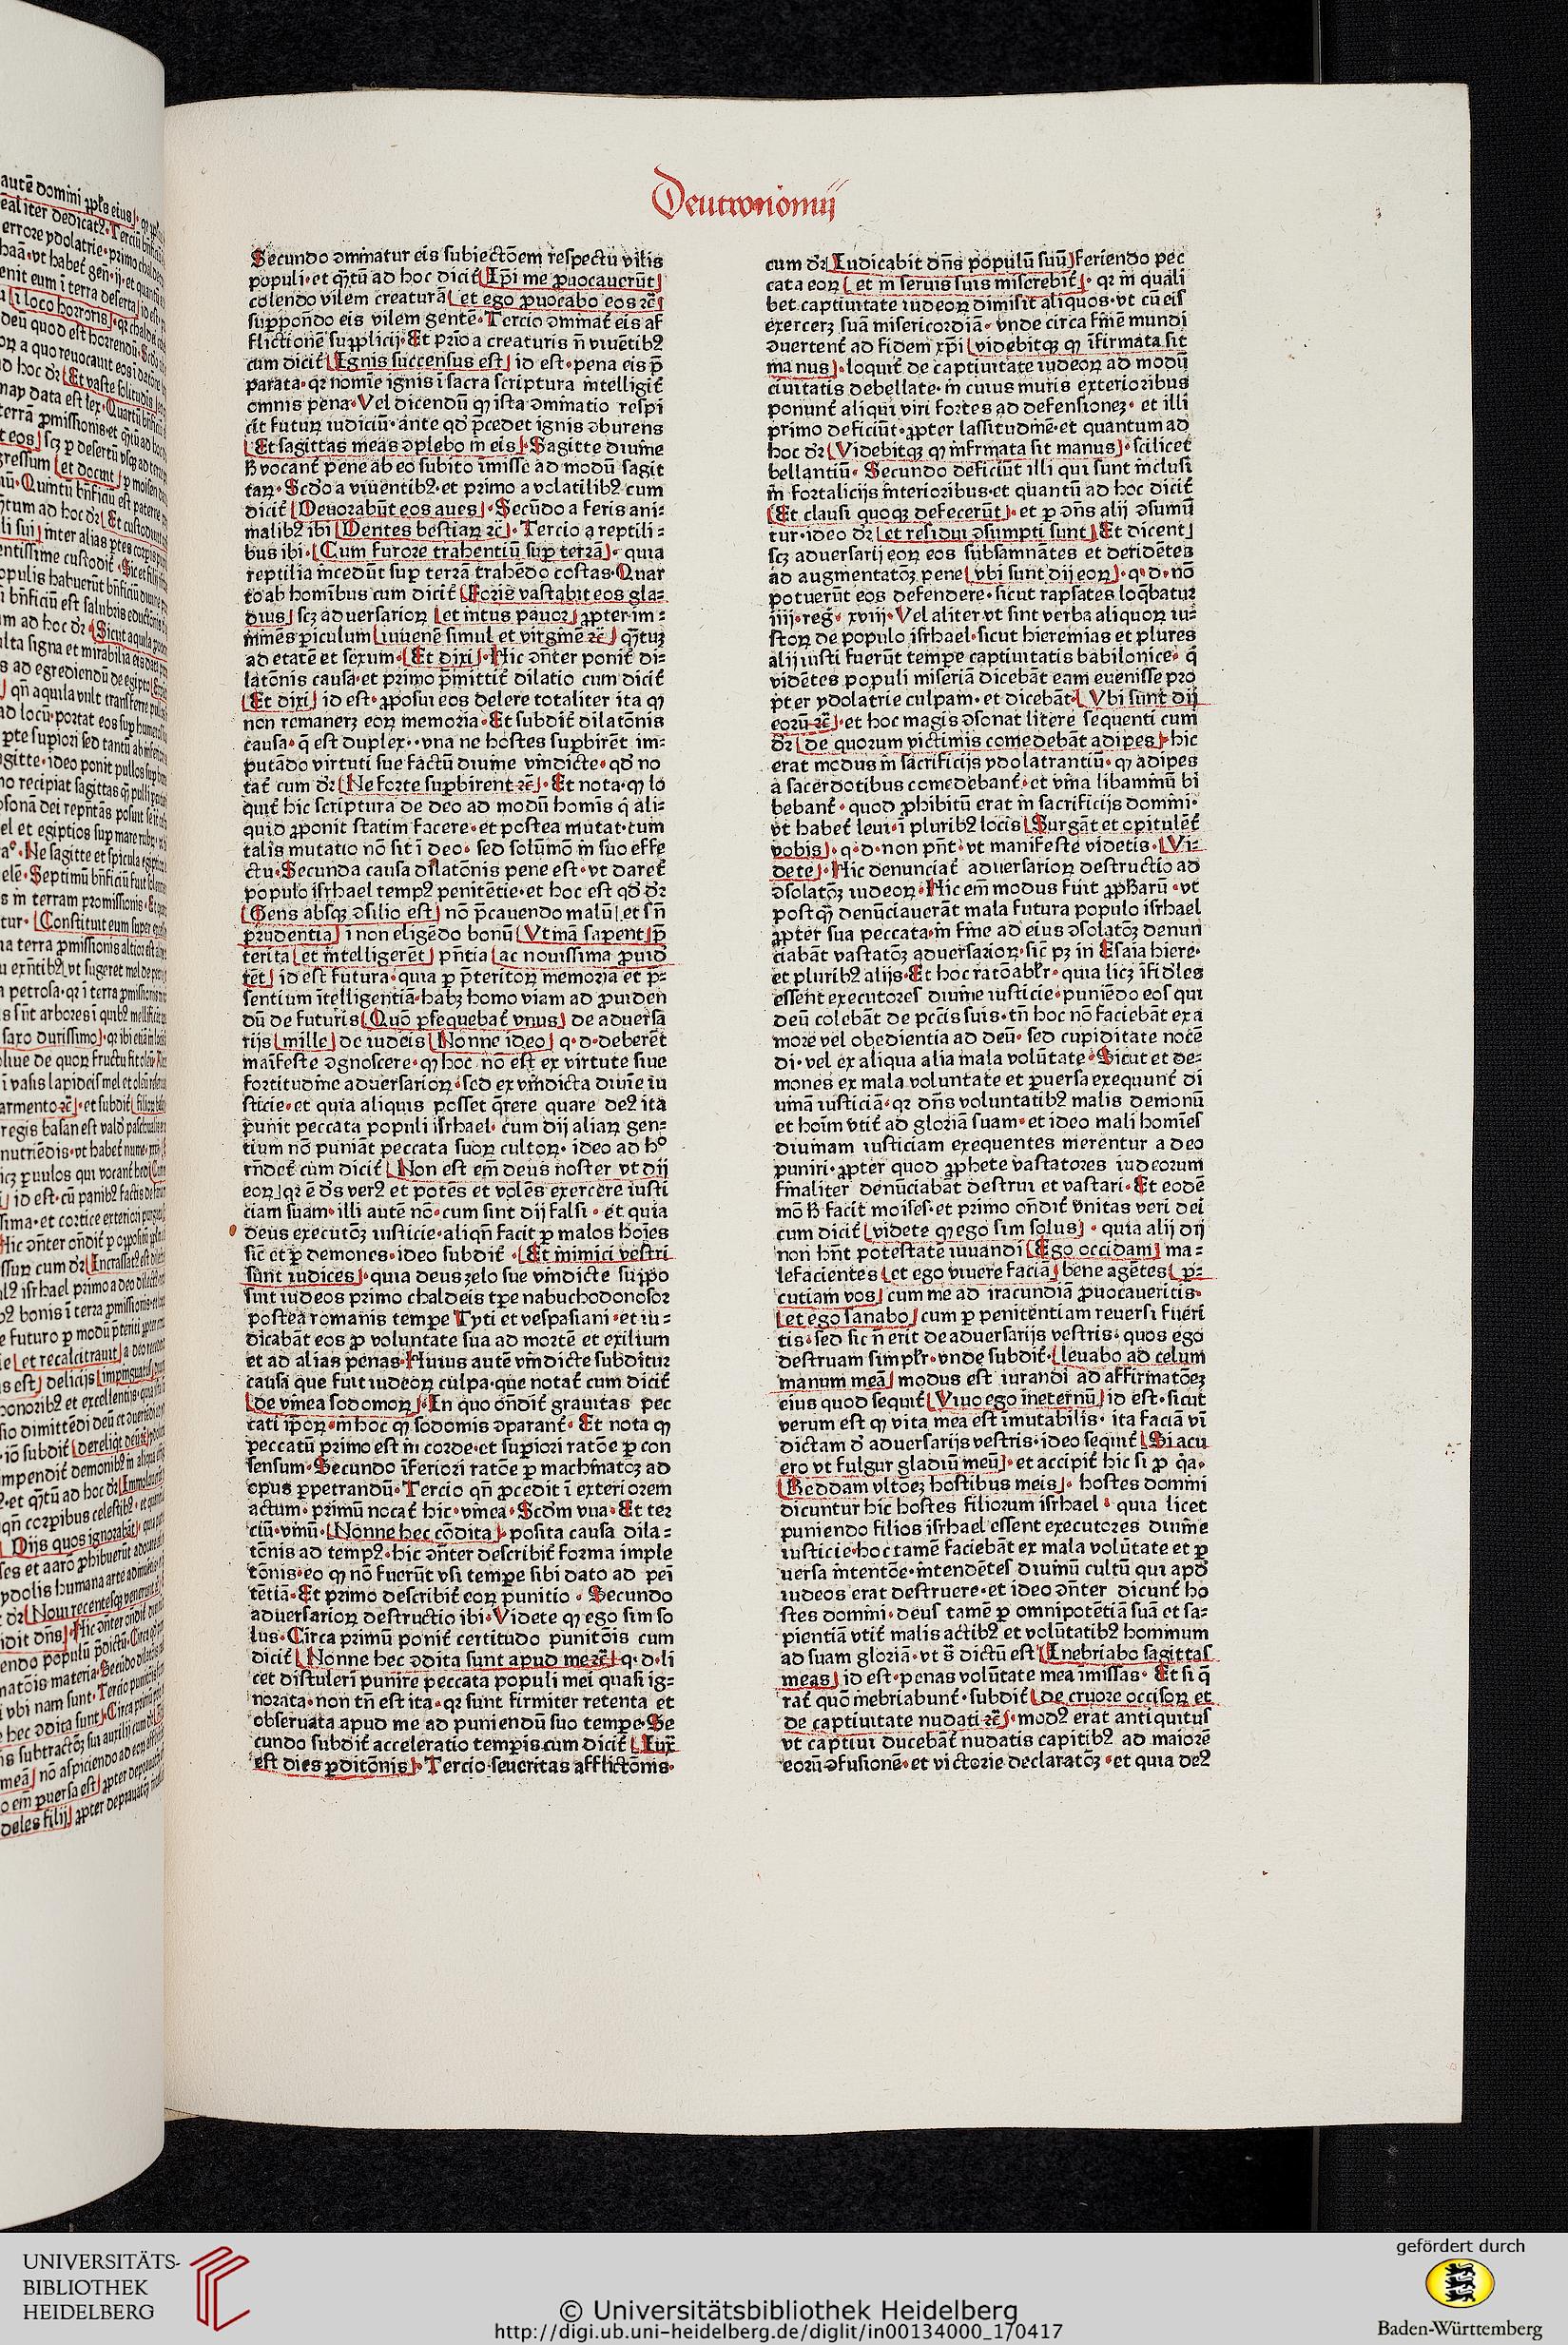 Deutronomij
Secundo ↄminatur eis subiectōem respectu vilis
populi·et q̄ꝫtū ad hoc dicit̄ Ip̄i me ꝓuocauerūt
colendo vilem creaturā et ego ꝓuocabo eos ⁊c̄
supponēdo eis vilem gentē·Tercio ↄminat̄ eis af
flictionē supplicij·Et prīo a creaturis n̄ viuētibꝫ
cum dicit̄ Ignis succensus est id est·pena eis p̄
parata·qꝛ nomīe ignis ī sacra scriptura intelligit̄
omnis pena·Vel dicendū qꝫ ista ↄminatio respi
cit futuꝝ iudiciū·ante qd̄ p̄cedet ignis ↄburens
Et sagittas meas ↄplebo in eis·Sagitte diuine
ꝧ vocant̄ pene ab eo subito imisse ad modū sagit
taꝝ·Scd̄o a viuentibꝫ·et primo a volatilibꝫ cum
dicit̄ Deuorabūt eos aues·Secūdo a feris ani⸗
malibꝫ ibi Dentes bestiaꝝ ⁊c̄·Tercio a reptili⸗
bus ibi·Cum furore trahentiū suꝑ terrā·quia
reptilia incedūt suꝑ terrā trahēdo costas·Quar
to ab hominibus cum dicit̄ Foris vastabit eos gla⸗
dius scꝫ aduersarioꝝ et intus pauor ꝓpter im⸗
minēs ꝑiculum iuuenē simul et virginē ⁊c̄ q̄ꝫtuꝫ
ad etatē et sexum·Et dixi·Hic ↄn̄ter ponit̄ di⸗
latōnis causa·et primo p̄mittit̄ dilatio cum dicit̄
Et dixi id est·ꝓposui eos delere totaliter ita qꝫ
non remaneꝛꝫ eoꝝ memoria·Et subdit̄ dilatōnis
causa·q̄ est duplex··vna ne hostes suꝑbirēt im⸗
putādo virtuti sue factū diuine vindicte·qd̄ no
tat̄ cum dꝛ̄ Ne forte suꝑbirent ⁊c̄·Et nota·qꝫ lo
quit̄ hic scriptura de deo ad modū homīs q̄ ali⸗
quid ꝓponit statim facere·et postea mutat·cum
talis mutatio nō sit ī deo·sed solūmō in suo effe
ctu·Secunda causa dilatōnis pene est·vt daret̄
populo isrhael tempꝫ penitētie·et hoc est qd̄ dꝛ̄
Gens absqꝫ ↄsilio est nō p̄cauendo malū et sn̄
prudentia ī non eligēdo bonū Vtinā sapent p̄
terita et intelligerēt pn̄tia ac nouissima ꝓuid
rēt id est futura·quia ꝑ p̄teritoꝝ memoriā et p̄⸗
sentium ītelligentiā·habꝫ homo viam ad ꝓuiden
dū de futuris Quō ꝑsequebat̄ vnus de aduersa
rijs mille de iudeis Nonne ideo q·d·deberēt
manifeste ↄgnoscere·qꝫ hoc nō est ex virtute siue
fortitudine aduersarioꝝ·sed ex vindicta diuīe iu
sticie·et quia aliquis posset q̄rere quare deꝫ ita
punit peccata populi isrhael·cum dij aliaꝝ gen⸗
tium nō puniāt peccata suoꝝ cultoꝝ·ideo ad hº
rn̄det̄ cum dicit̄ Non est em̄ deus noster vt dij
eoꝝ qꝛ ē ds̄ verꝫ et potēs et volēs exercere iusti
ciam suam·illi autē nō·cum sint dij falsi·et quia
deus executoꝝ iusticie·aliqn̄ facit ꝑ malos hoīes
sic̄ et ꝑ demones·ideo subdit̄·Et inimici vestri
sunt iudices·quia deus zelo sue vindicte suppo
suit iudeos primo chaldeis tꝑe nabuchodonosor
postea romanis tempe Tyti et vespasiani·et iu⸗
dicabāt eos ꝓ voluntate sua ad mortē et exilium
et ad alias penas·Huius autē vindicte subditur
causa que fuit iudeoꝝ culpa·que notat̄ cum dicit̄
de vinea sodomoꝝ·In quo ōndit̄ grauitas pec
cati ip̄oꝝ·in hoc qꝫ sodomis ↄparant̄·Et nota qꝫ
peccatū primo est in corde·et suꝑiori ratōe ꝑ con
sensum·Secundo īferiori ratōe ꝑ machinatoꝫ ad
opus ꝑpetrandū·Tercio qn̄ ꝓcedit ī exteriorem
actum·primū nocat̄ hic·vinea·Scdm̄ vua·Et ter
ciū·vinū·Nonne hec cōdita·posita causa dila⸗
tōnis ad tempꝫ·hic ↄn̄ter describit̄ forma imple
tōnis·eo qꝫ nō fuerūt vsi tempe sibi dato ad peī
tētiā·Et primo describit̄ eoꝝ punitio·Secundo
aduersarioꝝ destructio ibi·Videte qꝫ ego sim so
lus·Circa primū ponit̄ certitudo punitōis cum
dicit̄ Nonne hec ↄdita sunt apud me ⁊c̄ q·d·li
cet distulerī punire peccata populi mei quasi ig⸗
norata·non tn̄ est ita·qꝛ sunt firmiter retenta et
obseruata apud me ad puniendū suo tempe·Se
cundo subdit̄ acceleratio temꝑis cum dicit̄ Iux̄
est dies ꝑditōnis·Tercio·seueritas afflictōnis·
cum dꝛ̄ Iudicabit dn̄s populū suū feriendo pec
cata eoꝝ et in seruis suis miserebit̄·qꝛ in quali
bet captiuitate iudeoꝝ dimisit aliquos·vt cū eis
exerceꝛꝫ suā misericordiā·vnde circa finē mundi
ↄuertent̄ ad fidem xp̄i videbitqꝫ qꝫ īfirmata sit
manus·loquit̄ de captiuitate iudeoꝝ ad modū
ciuitatis debellate·in cuius muris exterioribus
ponunt̄ aliqui viri fortes ad defensionez·et illi
primo deficiūt·ꝓpter lassitudinē·et quantum ad
hoc dꝛ̄ Videbitqꝫ qꝫ infirmata sit manus·scilicet
bellantiū·Secundo deficiūt illi qui sunt inclusi
in fortalicijs interioribus·et quantū ad hoc dicit̄
Et clausi quoqꝫ defecerūt·et ꝑ ↄn̄s alij ↄsumū
tur·ideo dꝛ̄ et residui ↄsumpti sunt Et dicent
scꝫ aduersarij eoꝝ eos subsannātes et deridētes
ad augmentatōꝫ pene vbi sunt dij eoꝝ·q·d·nō
potuerūt eos defendere·sicut rapsates loq̄batur
iiij·reḡ·xviij·Vel aliter vt sint verba aliquoꝝ iu⸗
stoꝝ de populo isrhael·sicut hieremias et plures
alij iusti fuerūt tempe captiuitatis babilonice·q̄
vidētes populi miseriā dicebāt eam euenisse pro
pter ydolatrie culpam·et dicebāt·Vbi sunt dij
eorū ⁊c̄·et hoc magis ↄsonat litere sequenti cum
dꝛ̄ de quorum victimis comedebāt adipes·hic
erat modus in sacrificijs ydolatrantiū·qꝫ adipes
a sacerdotibus comedebant̄·et vina libaminū bi
bebant̄·quod ꝓhibitū erat in sacrificijs domini·
vt habet̄ leui·ī pluribꝫ locis Surgāt et opitulēt̄
vobis·q·d·non pn̄t·vt manifeste videtis·Vi⸗
dete·Hic denunciat̄ aduersarioꝝ destructio ad
ↄsolatōꝫ iudeoꝝ·Hic em̄ modus fuit ꝓphꝫarū·vt
postq̄ꝫ denūciauerāt mala futura populo isrhael
ꝓpter sua peccata·in fine ad eius ↄsolatōꝫ denun
ciabāt vastatōꝫ aduersarioꝝ·sic̄ pꝫ in Esaia hiere·
et pluribꝫ alijs·Et hoc ratōabłr·quia licꝫ īfideles
essent executores diuine iusticie·puniēdo eos qui
deū colebāt de pccīs suis·tn̄ hoc nō faciebāt ex a
more vel obedientia ad deū·sed cupiditate nocē
di·vel ex aliqua alia mala volūtate·Sicut et de⸗
mones ex mala voluntate et ꝑuersa exequunt̄ di
uinā iusticiā·qꝛ dn̄s voluntatibꝫ malis demonū
et hoīm vtit̄ ad gloriā suam·et ideo mali homīes
diuinam iusticiam exequentes merentur a deo
puniri·ꝓpter quod ꝓphete vastatores iudeorum
finaliter denūciabāt destrui et vastari·Et eodē
mō ꝧ facit moises·et primo ōndit̄ vnitas veri dei
cum dicit̄ videte qꝫ ego sim solus·quia alij dij
non hn̄t potestatē iuuandi Ego occidam ma⸗
lefacientes et ego viuere faciā bene agētes ꝑ⸗
cutiam vos cum me ad iracundiā ꝓuocaueritis·
et ego sanabo cum ꝑ penitentiam reuersi fueri
tis·sed sic n̄ erit de aduersarijs vestris·quos ego
destruam simpłr·vnde subdit̄·leuabo ad celum
manum meā modus est iurandi ad affirmatōeꝫ
eius quod sequit̄ Viuo ego ineternū id est·sicut
verum est qꝫ vita mea est īmutabilis·ita faciā vī
dictam d̄ aduersarijs vestris·ideo sequit̄ Si acu
ero vt fulgur gladiū meū·et accipit̄ hic si ꝓ q̄a·
Reddam vltōeꝫ hostibus meis·hostes domini
dicuntur hic hostes filiorum isrhael·quia licet
puniendo filios isrhael essent executores diuine
iusticie·hoc tamē faciebāt ex mala volūtate et ꝑ
uersa intentōe·intendētes diuinū cultū qui apd̄
iudeos erat destruere·et ideo ↄn̄ter dicunt̄ ho
stes domini·deus tamē ꝑ omnipotētiā suā et sa⸗
pientiā vtit̄ malis actibꝫ et volūtatibꝫ hominum
ad suam gloriā·vt s̄ dictū est Inebriabo sagittas
meas id est·penas volūtate mea īmissas·Et si q̄
rat̄ quō inebriabunt̄·subdit̄ de cruore occisoꝝ et
de captiuitate nudati ⁊c̄·modꝫ erat antiquitus
vt captiui ducebāt̄ nudatis capitibꝫ ad maiorē
eorū ↄfusionē·et victorie declaratōꝫ·et quia deꝫ
UNIVERSITÄTS-
BIBLIOTHEK
HEIDELBERG
© Universitätsbibliothek Heidelberg
http://digi.ub.uni-heidelberg.de/diglit/in00134000_1/0417
gefördert durch
Baden-Württemberg